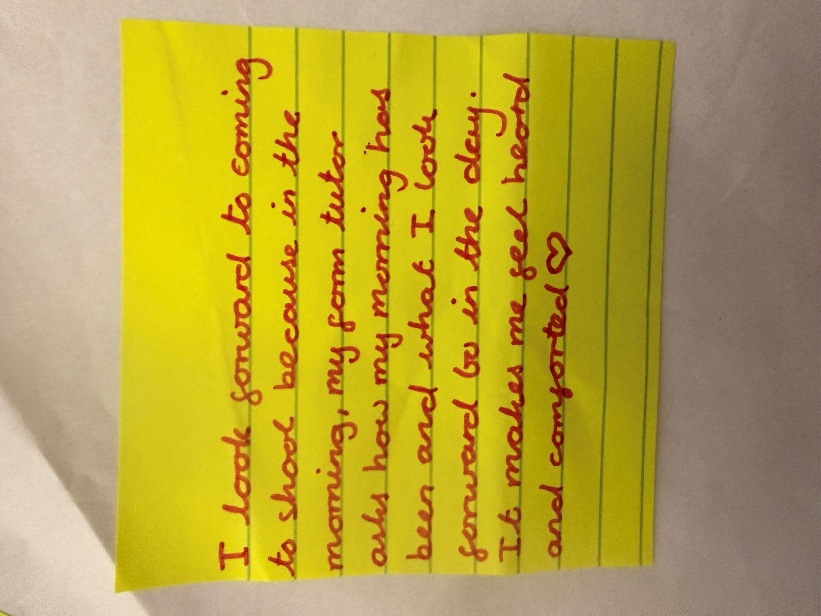 I look forward to coming
to shool because in the
morning, my form tutor
asks how my morning has
been and what I look
forward to in the day.
It makes me feel heard
and comforted ♡